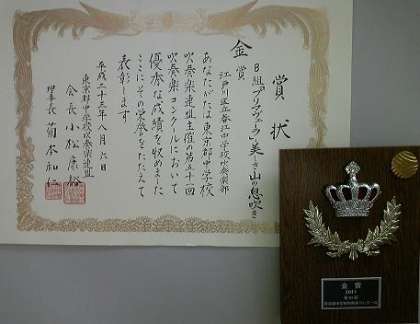 賞状
B組「プリマヴェーラ」美しき山の息吹き
金賞
江戸川区立春江中学校吹奏楽部
あなたがたは東京都中学校
吹奏楽連盟主催の第五十一回
吹奏楽コンクールにおいて
優秀な成績を収めました
ここにその栄誉をたたえて
表彰します
平成二十三年八月六日
東京都中学校吹奏楽連盟
会長 小松康裕
理事長 菊本和仁
金賞
2011